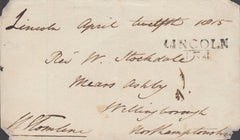 Lincoln April twelfth 1815
LINCOLN
134
Revd W. Stockdale
Mears Ashby
Wellingborough
Northamptonshire
W Tomline